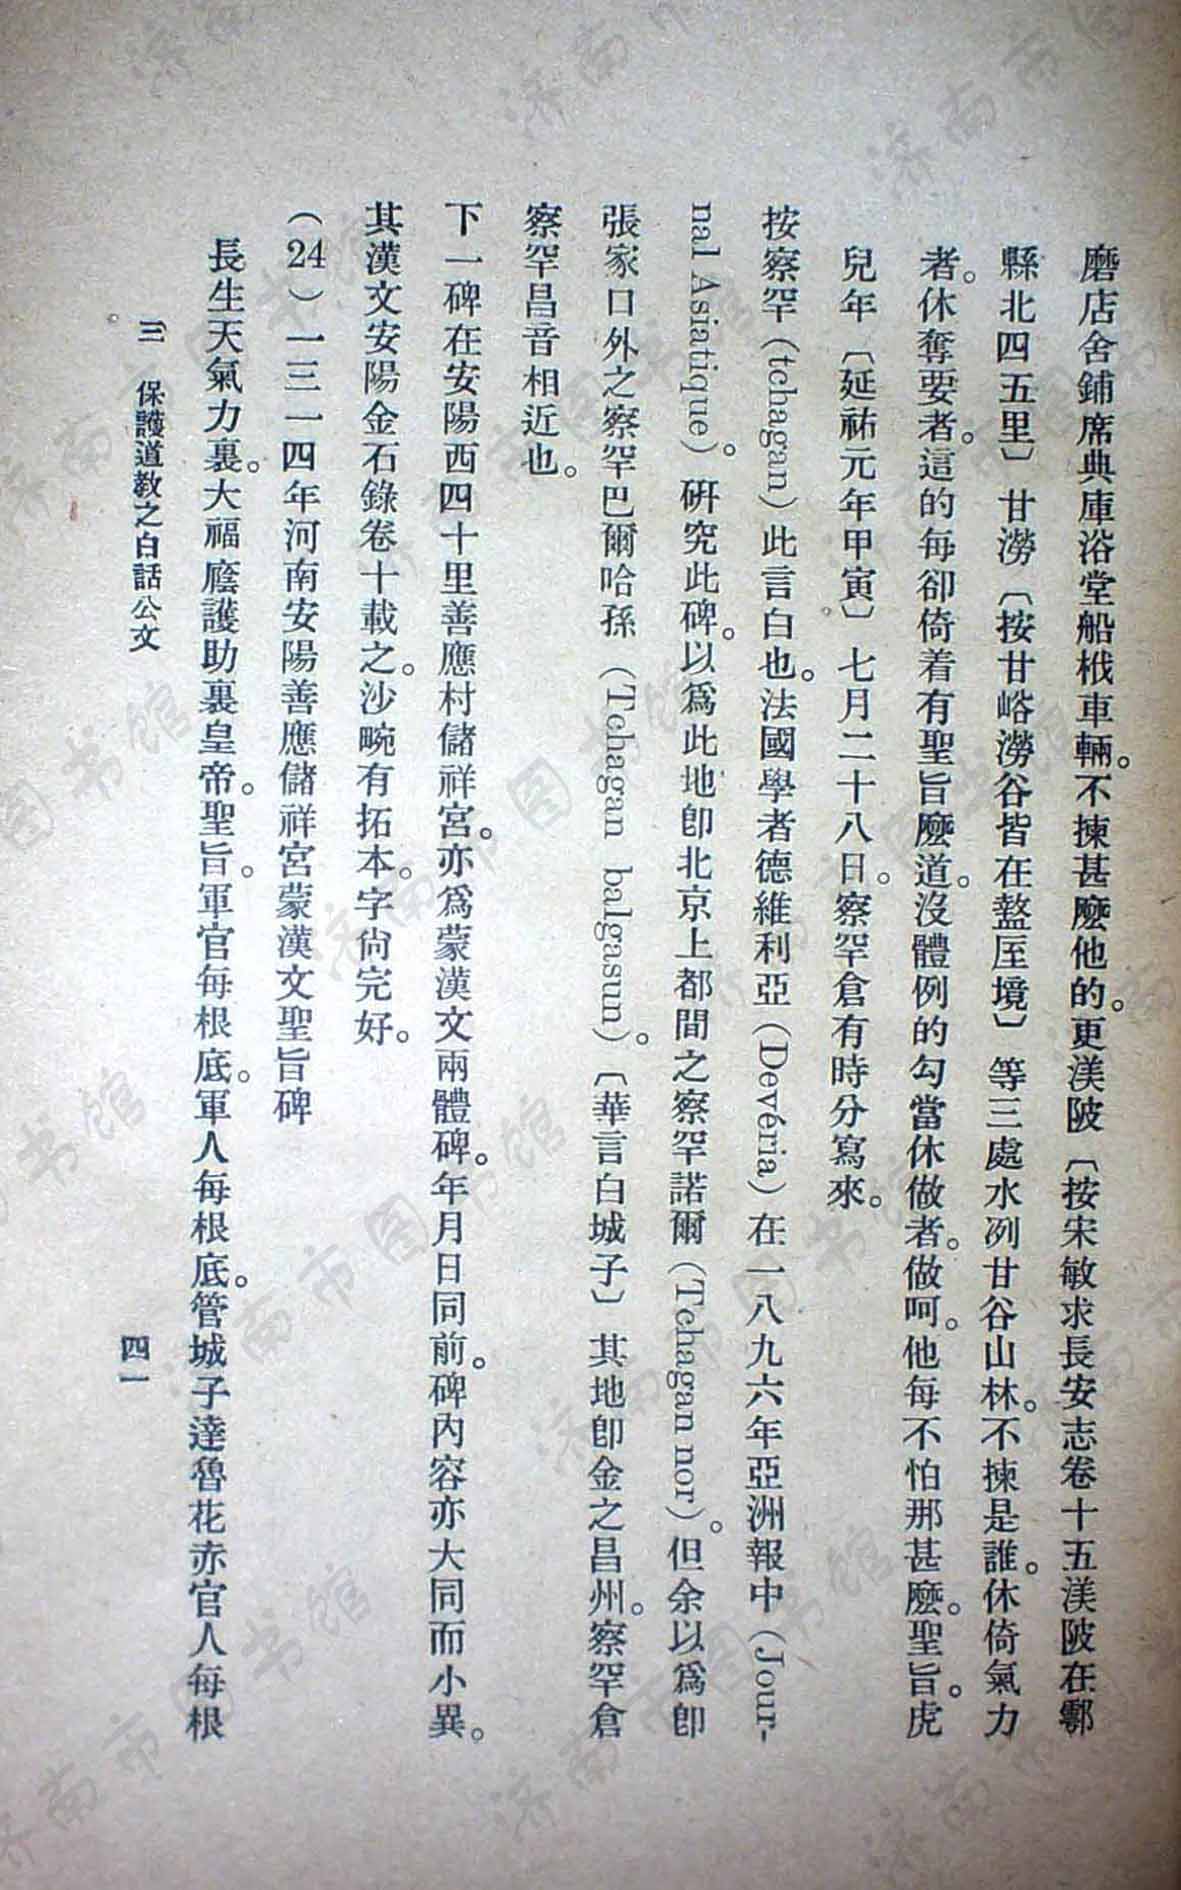 磨店舍鋪席典庫浴堂船栰車輛。不揀甚麽他的。更渼陂〔按宋敏求長安志卷十五渼陂在鄠
縣北四五里〕甘澇〔按甘峪澇谷皆在盩厔境〕等三處水冽甘谷山林。不揀是誰。休倚氣力
者。休奪要者。這的每卻倚着有聖旨麽道。沒體例的勾當休做者。做呵。他每不怕那甚麽。聖旨。虎
兒年〔延祐元年甲寅〕七月二十八日。察罕倉有時分寫來。
按察罕(tchagan)此言白也。法國學者德維利亞(Devéria)在一八九六年亞洲報中(Jour-
nal Asiatique)。研究此碑。以爲此地卽北京上都間之察罕諾爾(Tchagan nor)。但余以爲卽
張家口外之察罕巴爾哈孫(Tchagan balgasun)。〔華言白城子〕其地卽金之昌州。察罕倉
察罕昌音相近也。
下一碑在安陽西四十里善應村儲祥宮。亦爲蒙漢文兩體碑。年月日同前。碑內容亦大同而小異。
其漢文安陽金石錄卷十載之。沙畹有拓本。字尙完好。
(24)一三一四年河南安陽善應儲祥宮蒙漢文聖旨碑
長生天氣力裏。大福廕護助裏皇帝。聖旨。軍官每根底。軍人每根底。管城子達魯花赤官人每根
三 保護道教之白話公文
四一
济南市图书馆